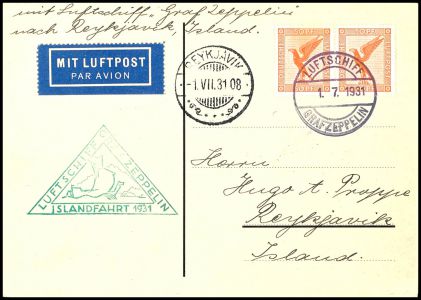 mit Luftschiff "Graf Zeppelin"
nach Reykjavik, Island.
MIT LUFTPOST
PAR AVION
REYKJAVIK
-1.VII.31 08
50 PF 50 PF
LUFTSCHIFF
1. 7. 1931
GRAF ZEPPELIN
LUFTSCHIFF G. ZEPPELIN
ISLANDFAHRT 1931
Herrn
Hugo A. Proppe
Reykjavik
Island.